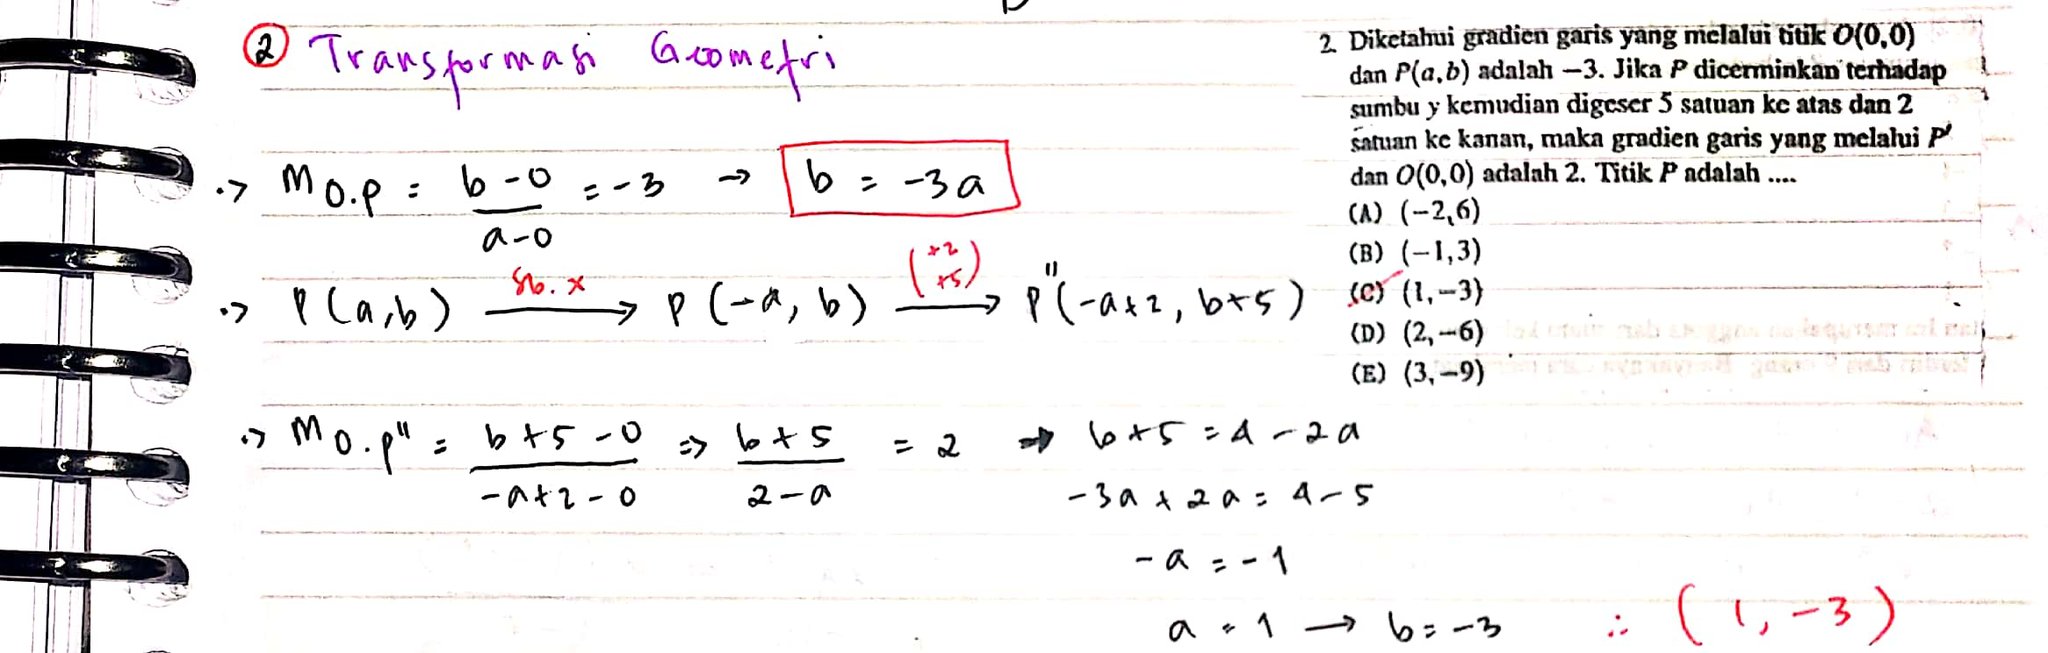 ② Transformasi Geometri
2. Diketahui gradien garis yang melalui titik O(0,0)
dan P(a,b) adalah −3. Jika P dicerminkan terhadap
sumbu y kemudian digeser 5 satuan ke atas dan 2
satuan ke kanan, maka gradien garis yang melalui P'
dan O(0,0) adalah 2. Titik P adalah ....
(A) (−2,6)
(B) (−1,3)
(C) (1,−3)
(D) (2,−6)
(E) (3,−9)
•> m O.P = b-0 / a-0 = -3 → b = -3a
•> P(a,b) sb. x → P(-a, b) (+2 +5) → P"(-a+2, b+5)
•> m O.P" = b+5-0 / -a+2-0 => b+5 / 2-a = 2 ⇒ b+5 = 4-2a
-3a + 2a = 4-5
-a = -1
a = 1 → b = -3 ∴ (1, -3)